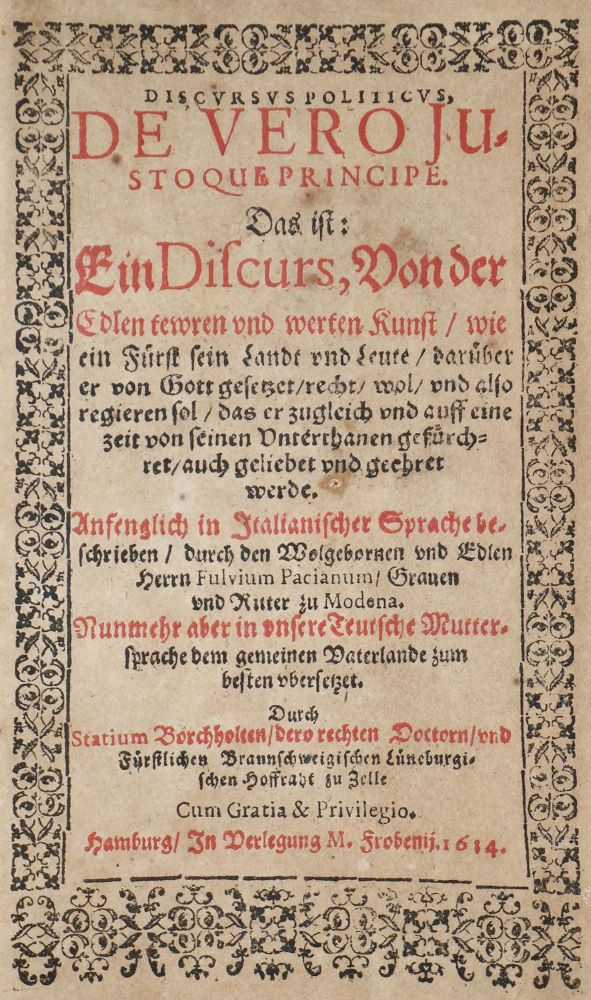 DISCVRSVS POLITICVS,
DE VERO JU-
STOQUE PRINCIPE.
Das ist:
Ein Discurs, Von der
Edlen tewren vnd werten Kunst / wie
ein Fürst sein Landt vnd Leute / darüber
er von Gott gesetzet / recht / wol / vnd also
regieren sol / das er zugleich vnd auff eine
zeit von seinen Vnterthanen gefürch-
ret / auch geliebet vnd geehret
werde.
Anfenglich in Italianischer Sprache be-
schrieben / durch den Wolgebornen vnd Edlen
Herrn Fulvium Pacianum / Grauen
vnd Ritter zu Modena.
Nunmehr aber in vnsere Teutsche Mutter-
sprache dem gemeinen Vaterlande zum
besten vbersetzet.
Durch
Statium Borchholten / dero rechten Doctorn / vnd
Fürstlichen Braunschweigischen Lüneburgi-
schen Hoffraht zu Zelle
Cum Gratia & Privilegio.
Hamburg / In Verlegung M. Frobenij. 1614.